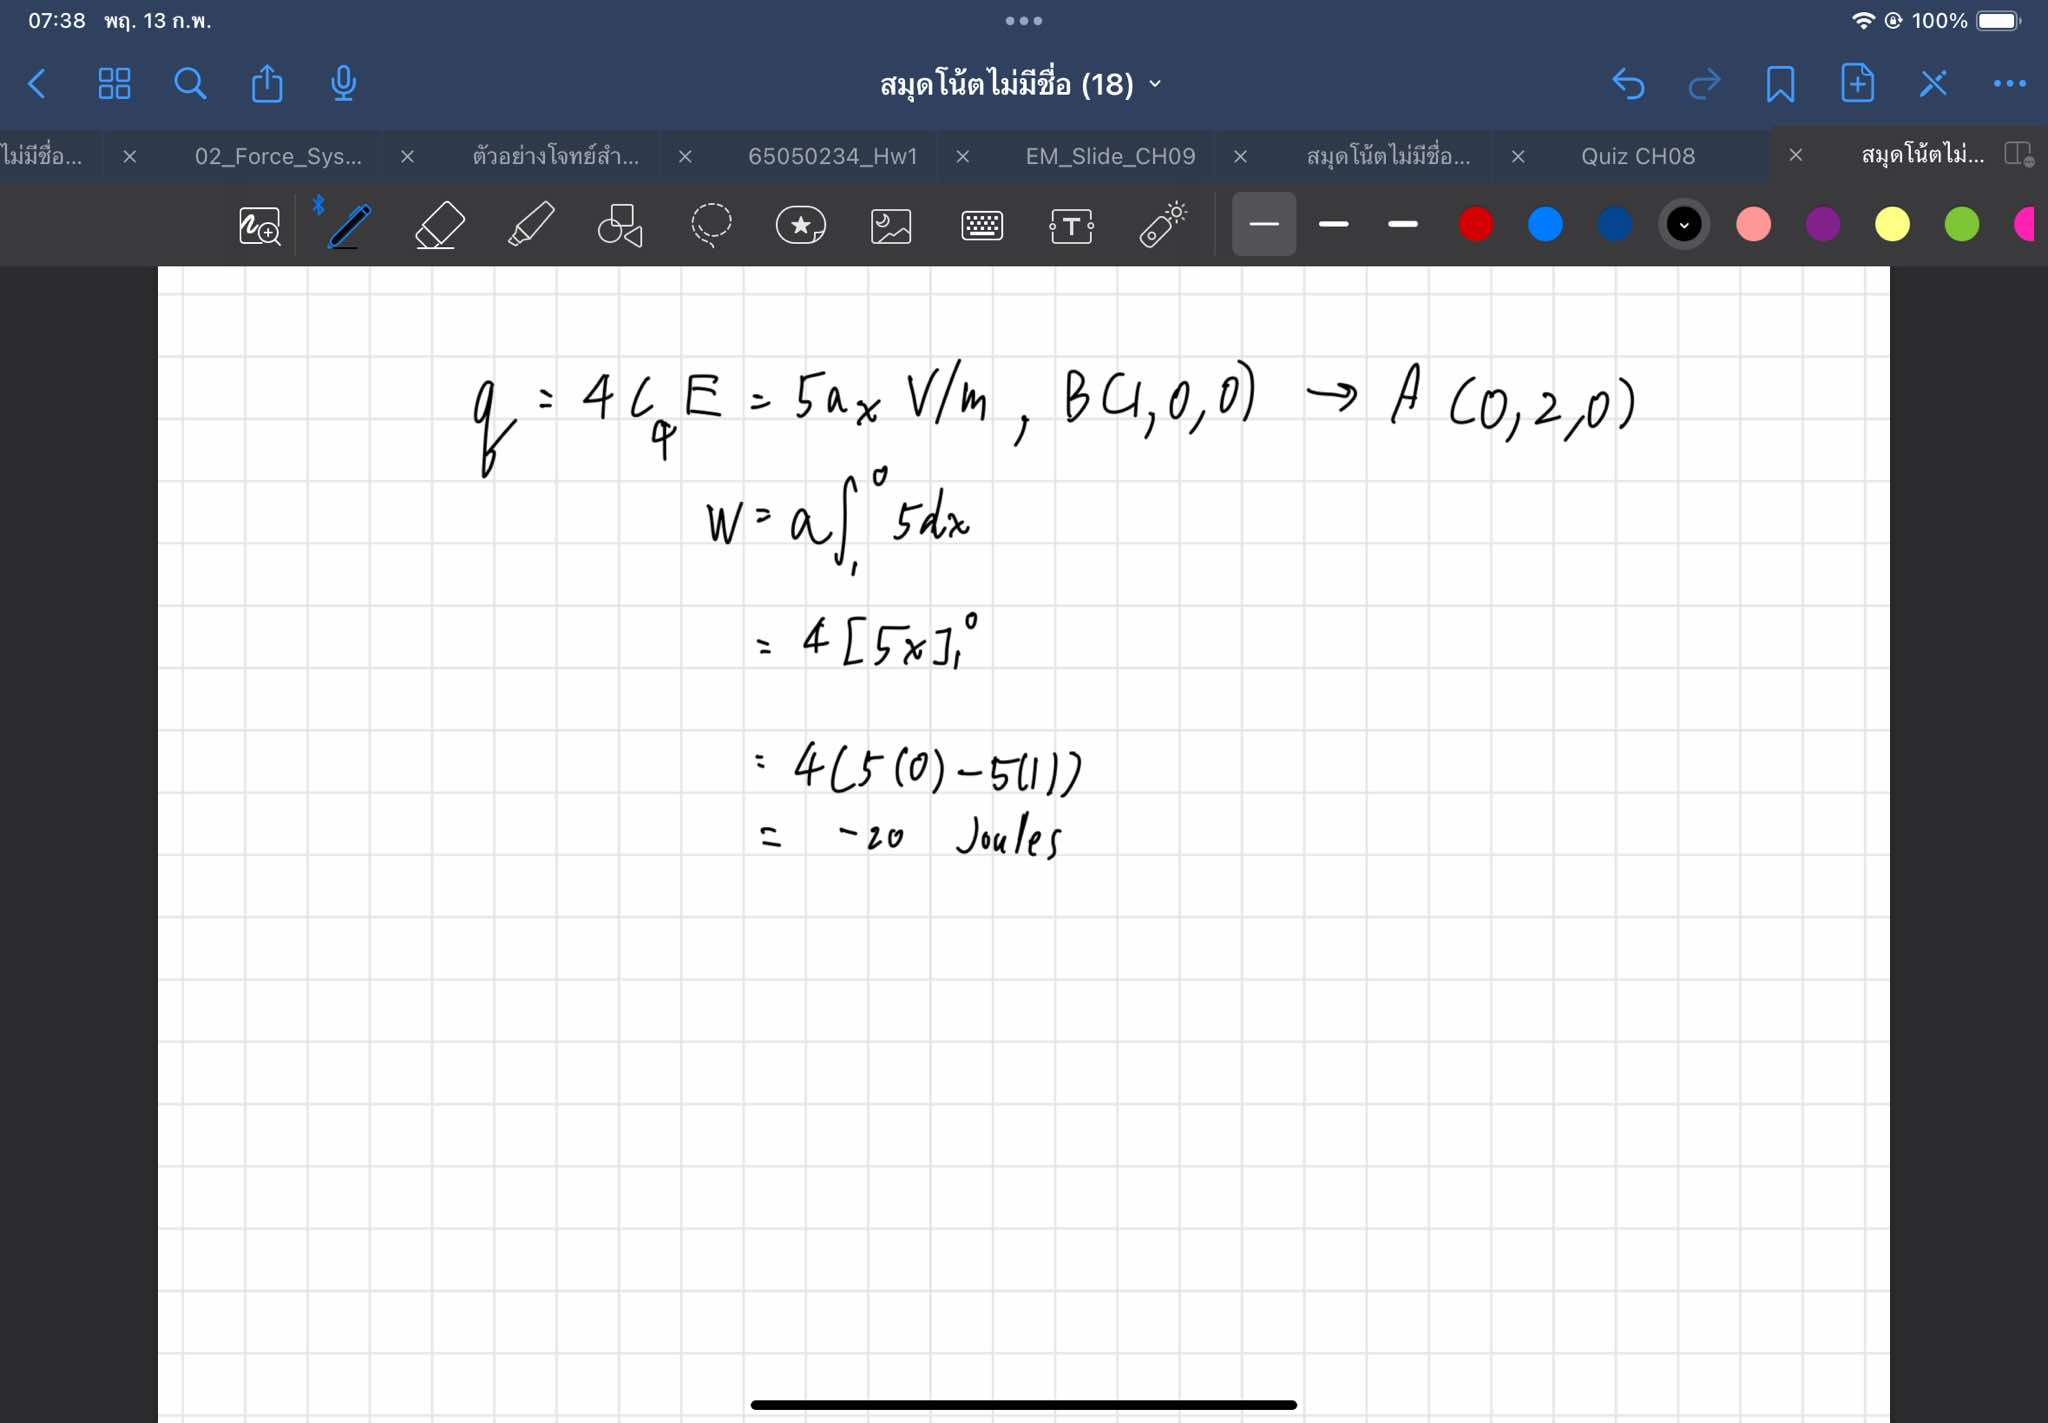 07:38 พฤ. 13 ก.พ. 100%
สมุดโน้ตไม่มีชื่อ (18)
ไม่มีชื่อ... 02_Force_Sys... ตัวอย่างโจทย์สำ... 65050234_Hw1 EM_Slide_CH09 สมุดโน้ตไม่มีชื่อ... Quiz CH08 สมุดโน้ตไม่...
q = 4 C, E = 5ax V/m, B(1,0,0) → A (0,2,0)
W = a∫₁⁰ 5dx
= 4[5x]₁⁰
= 4(5(0)-5(1))
= -20 Joules